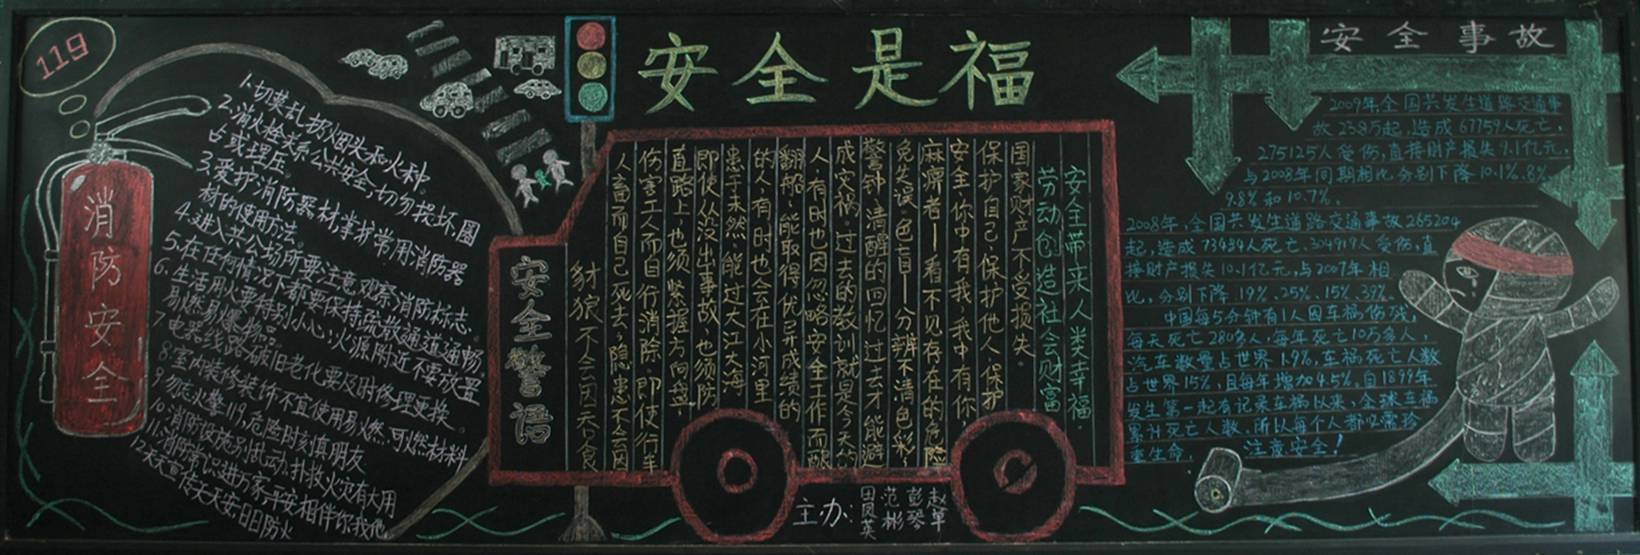 119
消防安全
1.切莫乱扔烟头和火种。
2.消火栓关系公共安全,切勿损坏、圈
占或埋压。
3.爱护消防器材,掌握常用消防器
材的使用方法。
4.进入公共场所要注意观察消防标志。
5.在任何情况下都要保持疏散通道通畅
6.生活用火要特别小心,火源附近不要放置
易燃易爆物品。
7.电器线路破旧老化要及时修理更换。
8.室内装修装饰不宜使用易燃、可燃材料
9.勿忘火警119,危险时刻真朋友
10.消防设施别乱动,扑救火灾有大用
11.消防常识进万家,平安相伴你我他
12.天天宣传天天安日日防火
安全是福
安全警语
安全带来人类幸福,
劳动创造社会财富
国家财产不受损失。
保护自己、保护他人、保护
安全你中有我,我中有你,
麻痹者——看不见存在的危险
免失误。色盲——分辨不清色彩;
警钟,清醒的回忆过去才能避
成灾祸。过去的教训就是今天的
人,有时也因忽略安全工作而酿
翻船。能取得优异成绩的
的人,有时也会在小河里
患于未然。能过大江大海
即使从没出事故,也须防
直路上也须紧握方向盘;
伤害工人而自行消除。即使行车
人畜而自己死去;隐患不会因
豺狼不会因天食
主办:
田凤英
范彬
彭琴
赵单
安全事故
2009年,全国共发生道路交通事
故238万起,造成67759人死亡、
275125人受伤,直接财产损失9.1亿元,
与2008年同期相比分别下降10.1%、8%、
9.8%和10.7%。
2008年,全国共发生道路交通事故265204
起,造成73484人死亡、304919人受伤,直
接财产损失10.1亿元,与2007年相
比,分别下降19%、25%、15%、39%。
中国每5分钟有1人因车祸伤残,
每天死亡280多人,每年死亡10万多人,
汽车数量占世界1.9%,车祸死亡人数
占世界15%,且每年增加4.5%,自1899年
发生第一起有记录车祸以来,全球车祸
累计死亡人数,所以每个人都必需珍
重生命,注意安全!